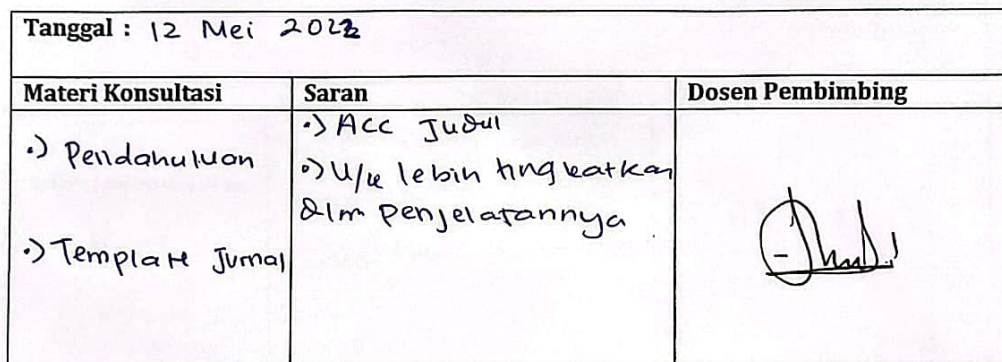 Tanggal : 12 Mei 2022
Materi Konsultasi
Saran
Dosen Pembimbing
•) Pendahuluan
•) Template Jurnal
•) Acc Judul
•) U/k lebih tingkatkan
dlm penjelasannya